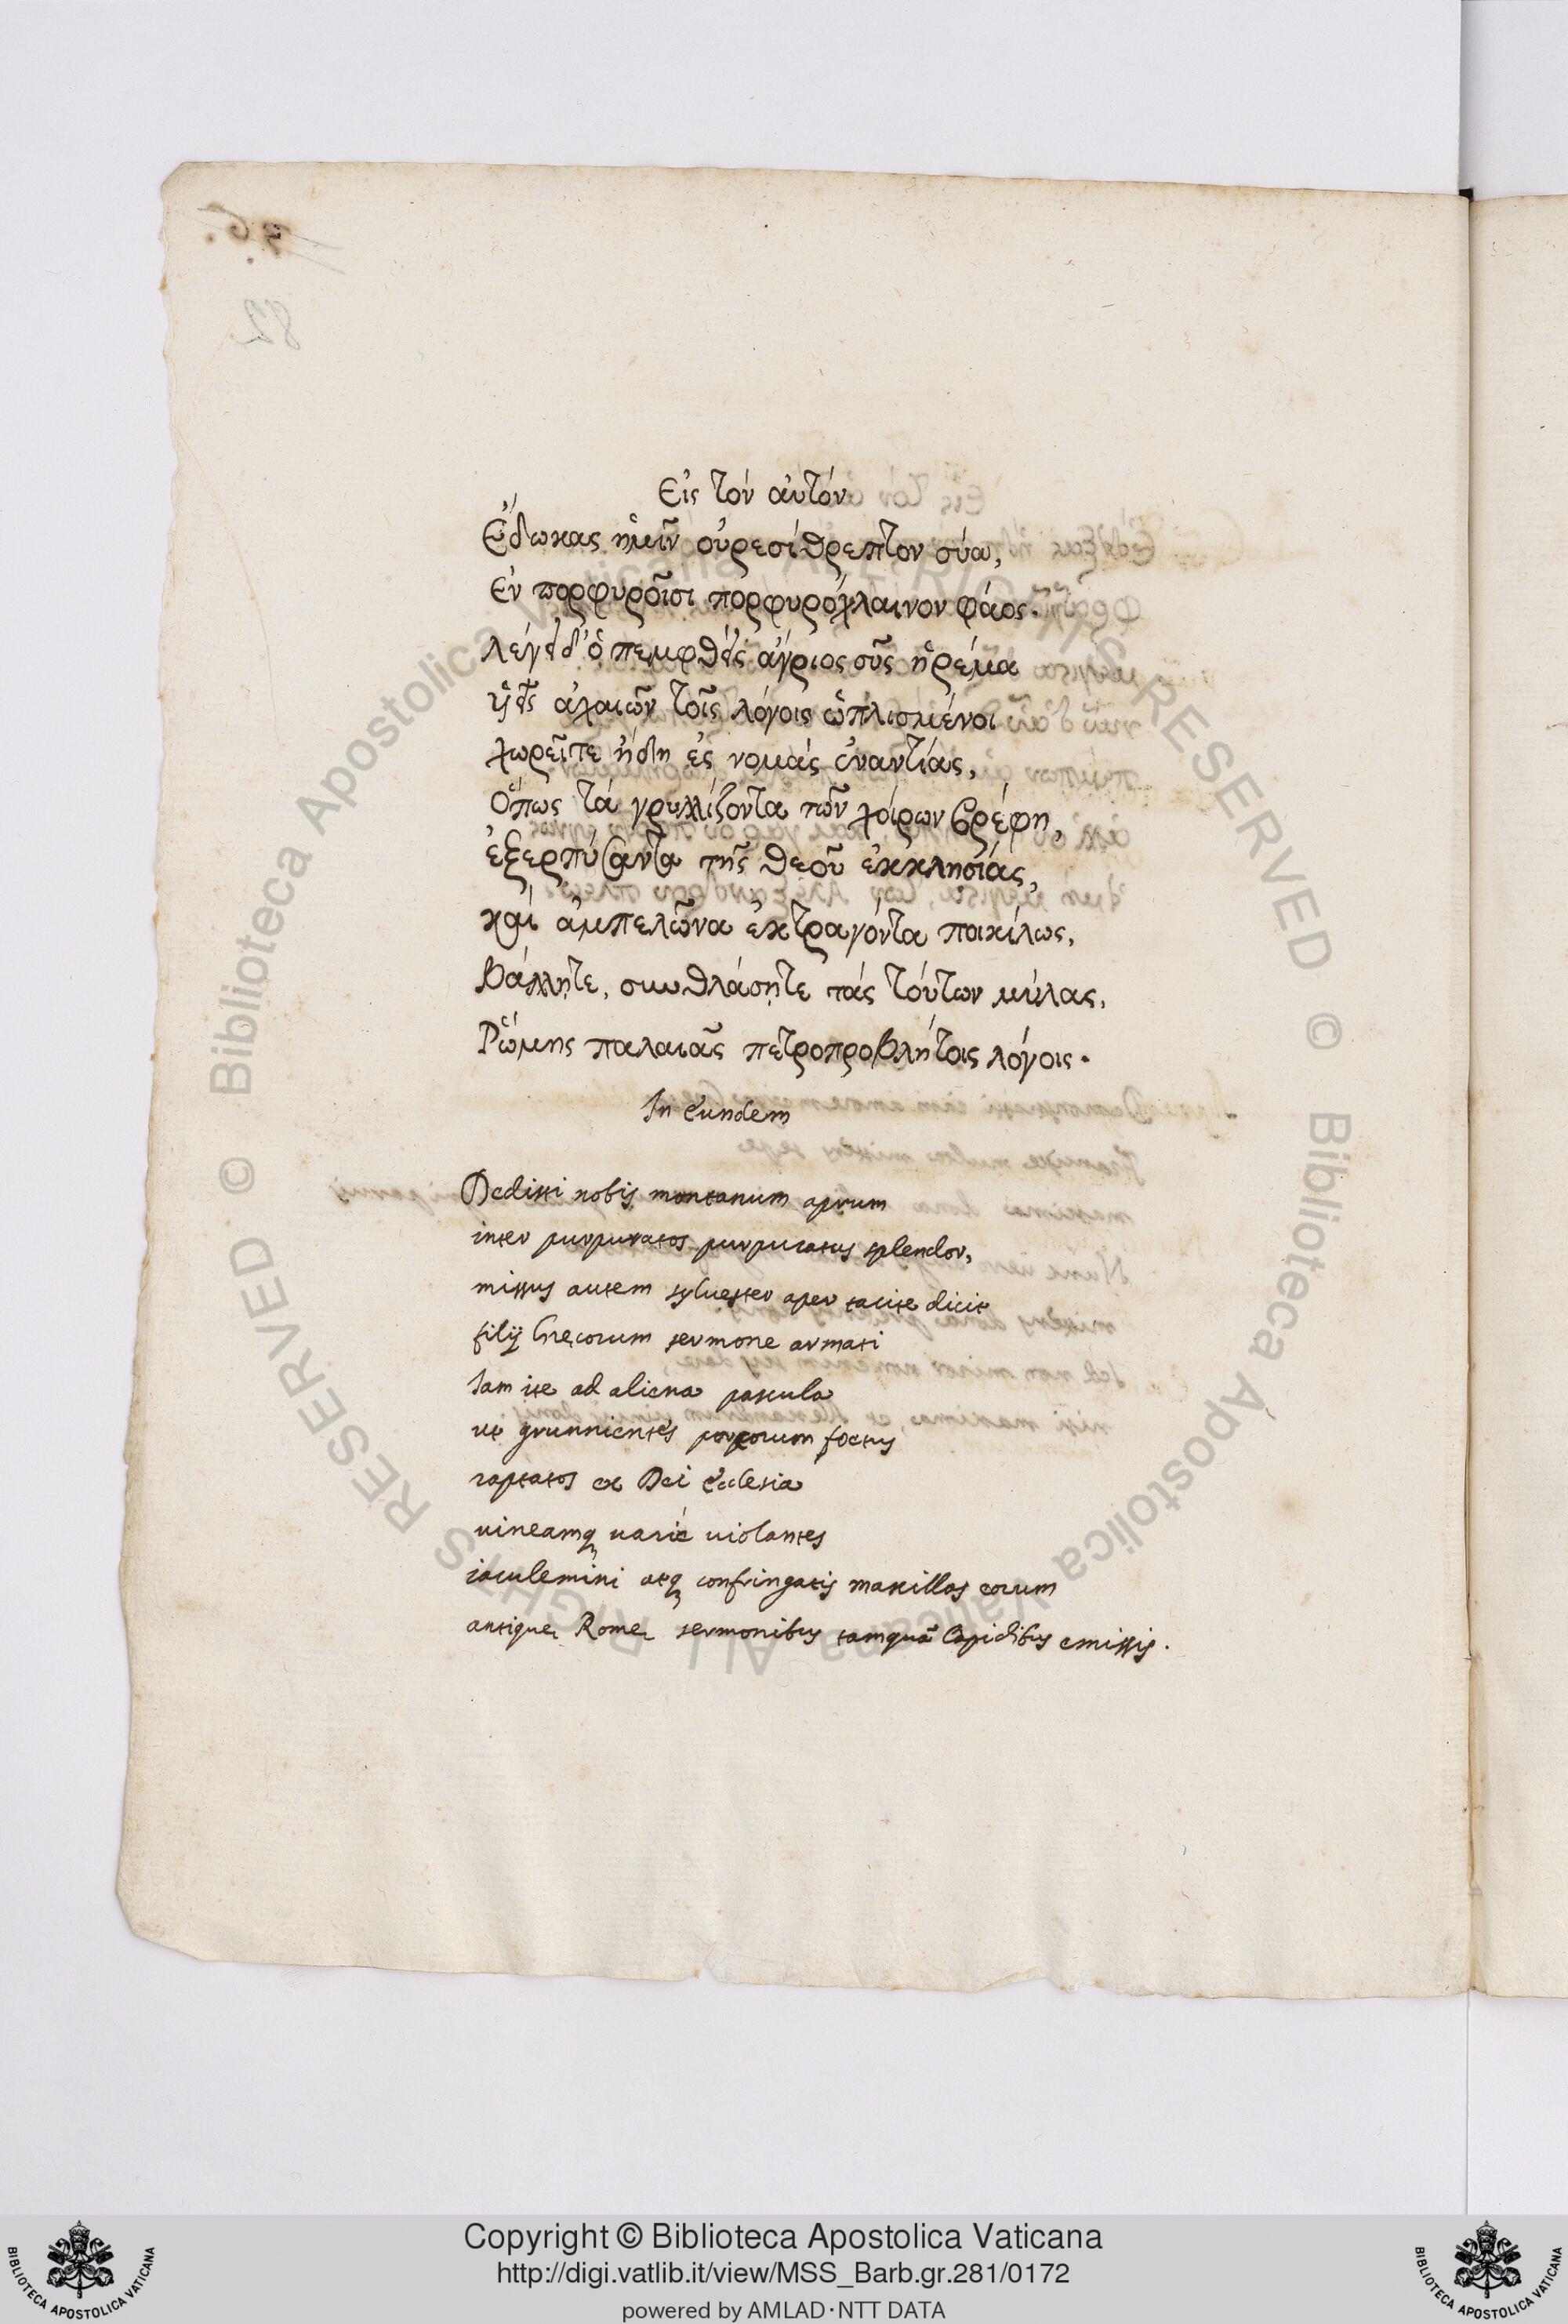 Εἰς τὸν αὐτόν
Ἔδωκας ἡμῖν οὐρεσίθρεπτον σύα,
Ἐν πορφυροῖσι πορφυρόχλαινον φάος.
λέγει δ' ὁ πεμφθεὶς ἄγριος σῦς ἠρέμα
υἱεῖς ἀχαιῶν τοῖς λόγοις ὡπλισμένοι
χωρεῖτε ἤδη εἰς νομὰς ἐναντίας,
Ὅπως τὰ γρυλλίζοντα τῶν χοίρων βρέφη,
ἐξερπύσαντα τῆς θεοῦ ἐκκλησίας,
καὶ ἀμπελῶνα ἐκτραγόντα ποικίλως,
Βάλλητε, συνθλάσητε τὰς τούτων μύλας,
Ῥώμης παλαιᾶς πετροπροβλήτοις λόγοις.
In eundem
Dedisti nobis montanum aprum
inter purpuratos purpuratus splendor,
missus autem syluester aper tacite dicit
filij Gręcorum sermone armati
Iam ite ad aliena pascula
ut grunnientes porcorum foetus
raptatos ex Dei Ecclesia
uineamq uariè uiolantes
iaculemini atq confringatis maxillas eorum
antique Rome sermonibus tamquã lapidibus emissis.
© Biblioteca Apostolica Vaticana ALL RIGHTS RESERVED © Biblioteca Apostolica Vaticana ALL RIGHTS RESERVED
Copyright © Biblioteca Apostolica Vaticana
http://digi.vatlib.it/view/MSS_Barb.gr.281/0172
powered by AMLAD·NTT DATA
BIBLIOTECA APOSTOLICA VATICANA
BIBLIOTECA APOSTOLICA VATICANA